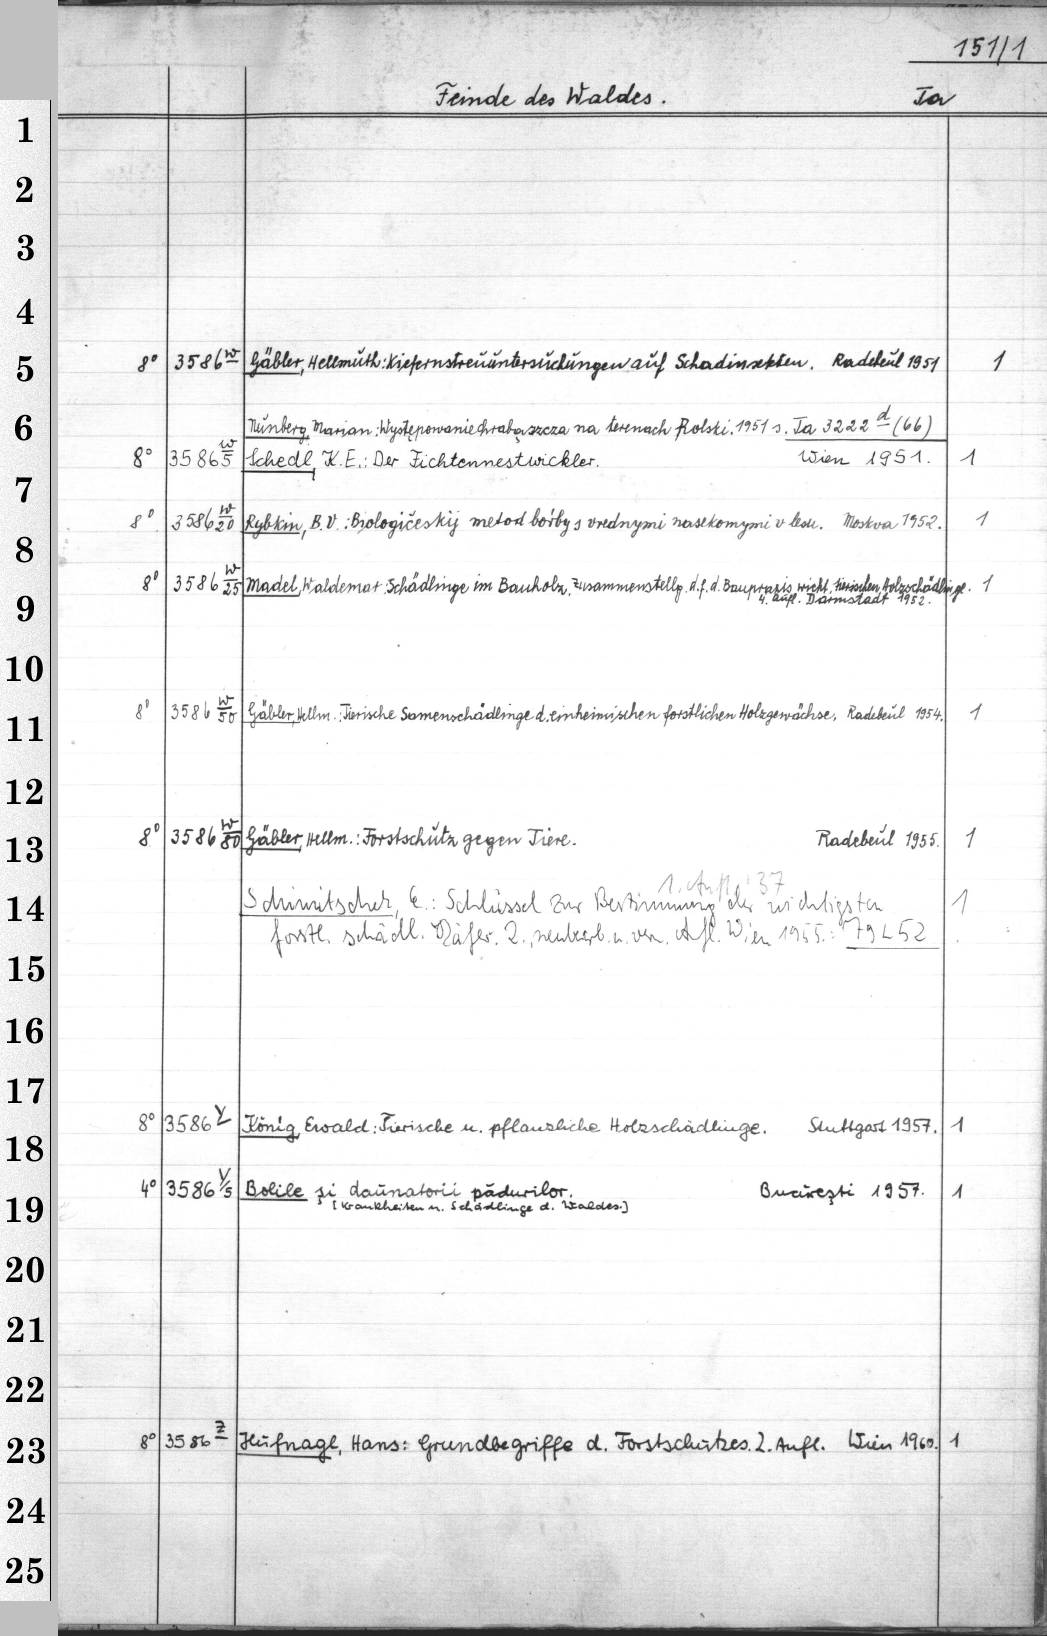 151/1
Feinde des Waldes. Ta
1
2
3
4
5 8° 3586 w Gäbler, Hellmuth: Kiefernstreuuntersuchungen auf Schadinsekten. Radebeul 1951 1
6 Nunberg, Marian: Występowanie chrabąszcza na terenach Polski. 1951 s. Ta 3222 d (66)
8° 3586 w/5 Schedl, K.E.: Der Fichtennestwickler. Wien 1951. 1
7
8° 3586 w/20 Rybkin, B.V.: Biologičeskij metod boŕby s vrednymi nasekomymi v lesu. Moskva 1952. 1
8
8° 3586 w/25 Madel, Waldemar: Schädlinge im Bauholz. Zusammenstellg. d. f. d. Baupraxis wicht. tierischen Holzschädlinge. 1
9 4. Aufl. Darmstadt 1952.
10
8° 3586 w/50 Gäbler, Hellm.: Tierische Samenschädlinge d. einheimischen forstlichen Holzgewächse. Radebeul 1954. 1
11
12
8° 3586 w/80 Gäbler, Hellm.: Forstschutz gegen Tiere. Radebeul 1955. 1
13
1. Aufl. '37
14 Schimitschek, E.: Schlüssel zur Bestimmung der wichtigsten 1
forstl. schädl. Käfer. 2., neubearb. u. verm. Afl. Wien 1955.: 79 L 52
15
16
17
8° 3586 y König, Ewald: Tierische u. pflanzliche Holzschädlinge. Stuttgart 1957. 1
18
4° 3586 y/5 Bolile şi daunatorii pădurilor. Bucureşti 1957. 1
19 [Krankheiten u. Schädlinge d. Waldes.]
20
21
22
23 8° 3586 z Hufnagl, Hans: Grundbegriffe d. Forstschutzes. 2. Aufl. Wien 1960. 1
24
25